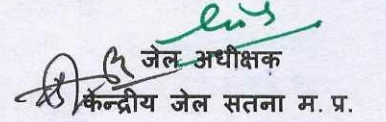 जेल अधीक्षक
केन्द्रीय जेल सतना म. प्र.